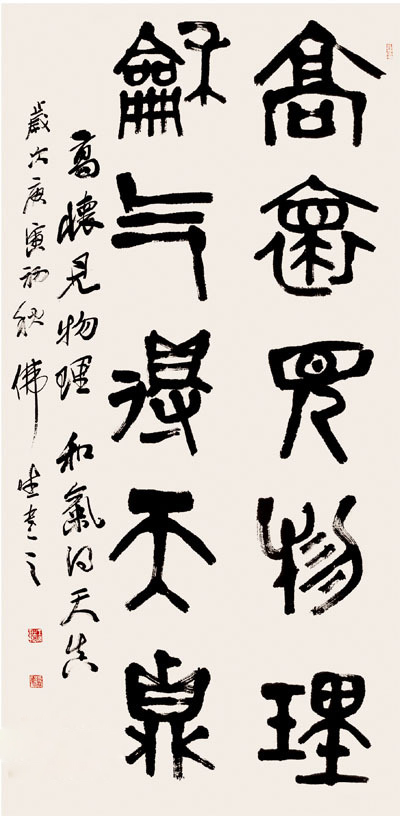 高懷見物理
龢气得天真
高懷見物理 和氣得天真
歲次庚寅初秋 佛生書之